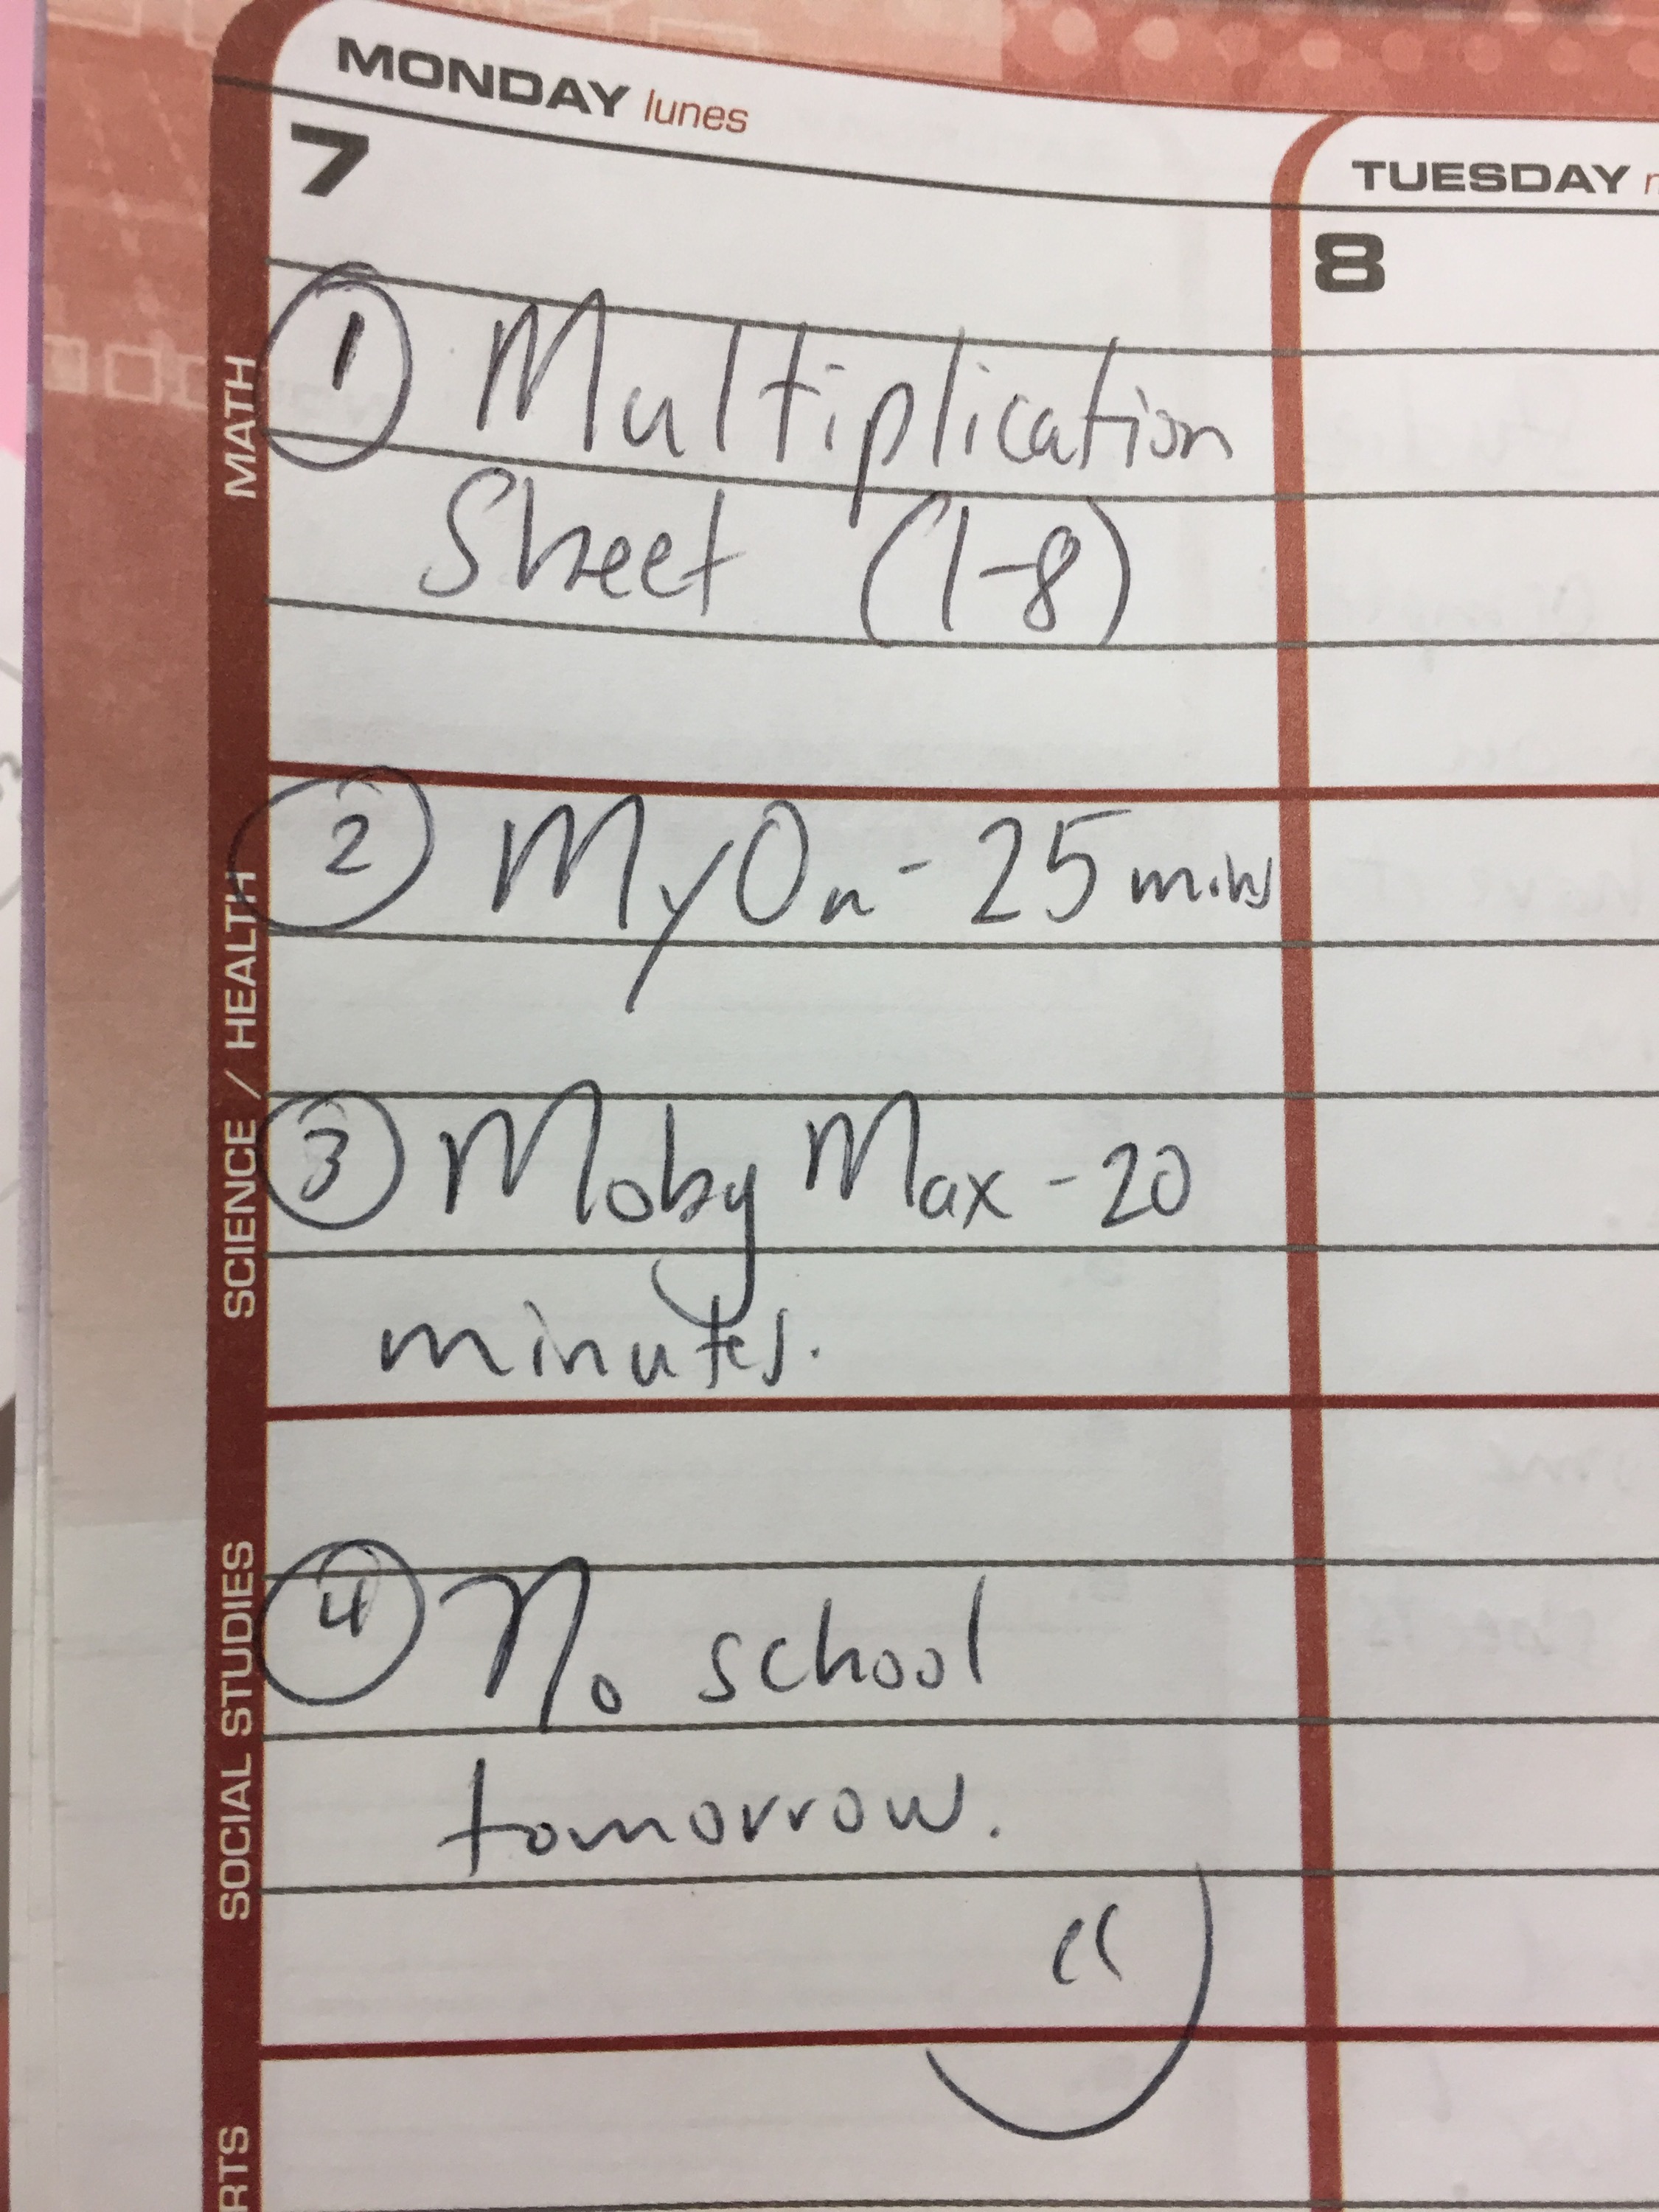 MONDAY lunes
7
TUESDAY
8
MATH
① Multiplication
Sheet (1-8)
SCIENCE / HEALTH
② MyOn - 25 mins
③ Moby Max - 20
minutes.
SOCIAL STUDIES
④ No school
tomorrow.
RTS